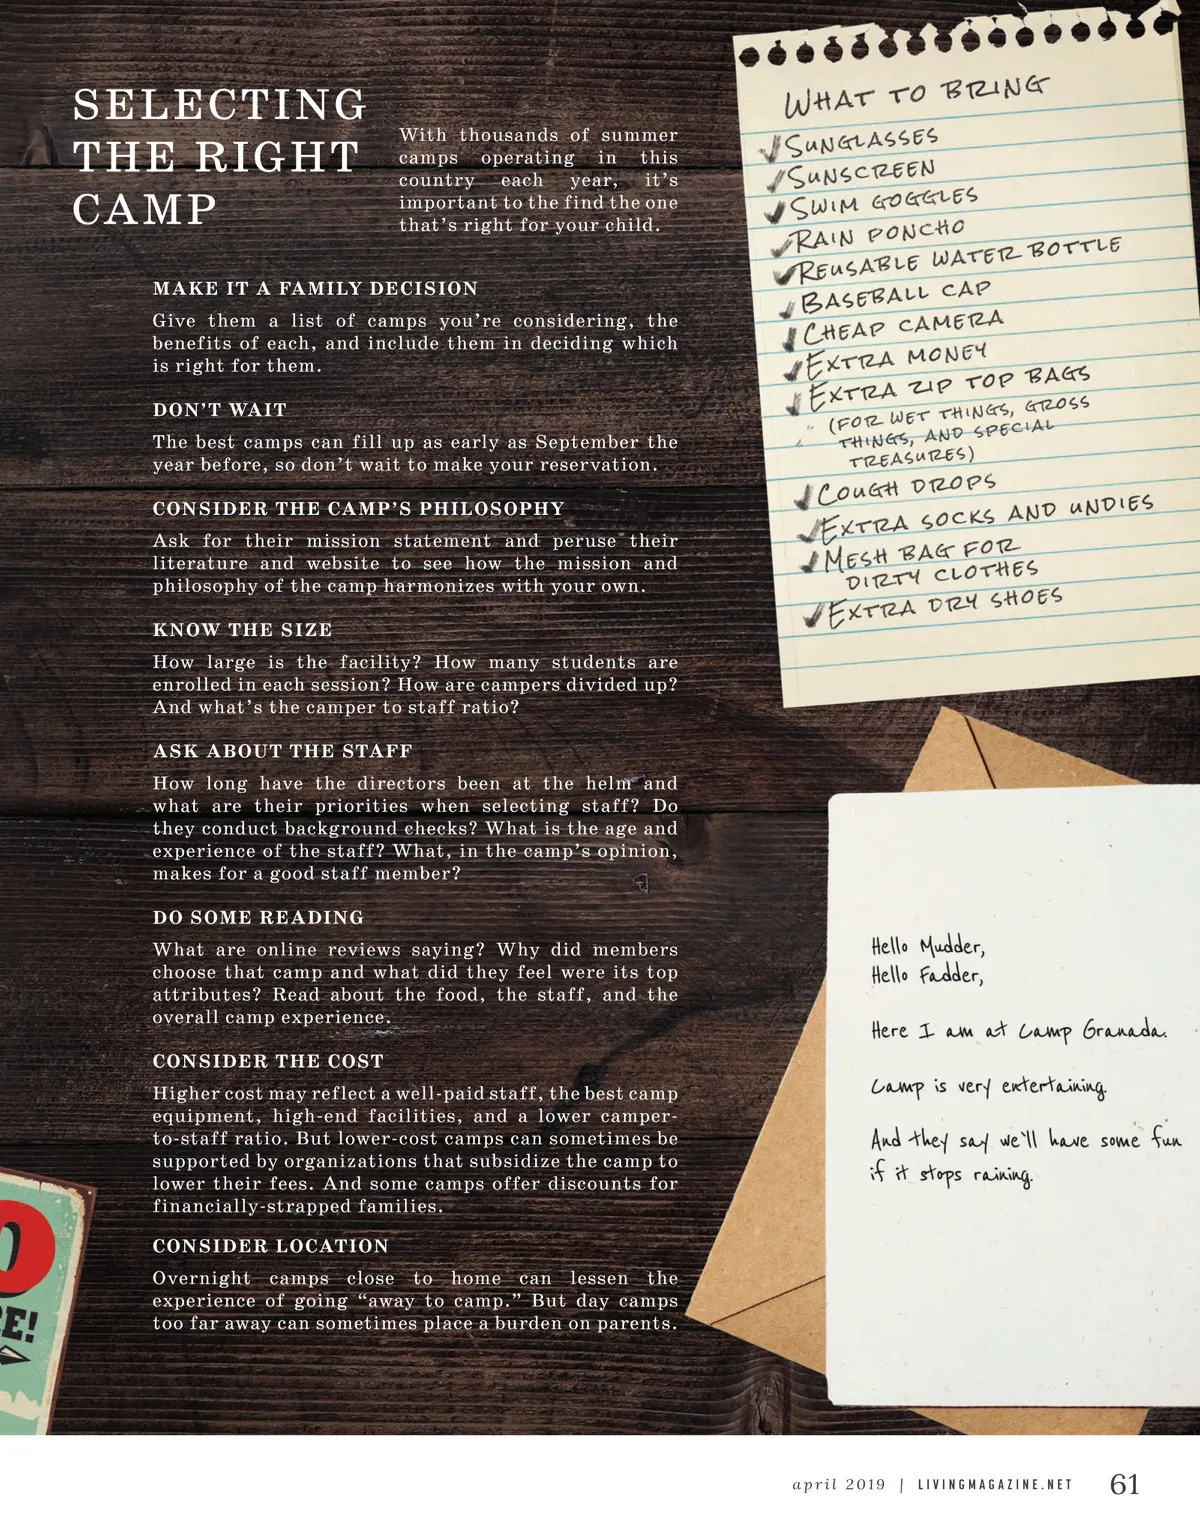 SELECTING
THE RIGHT
CAMP
With thousands of summer
camps operating in this
country each year, it's
important to the find the one
that's right for your child.
MAKE IT A FAMILY DECISION
Give them a list of camps you're considering, the
benefits of each, and include them in deciding which
is right for them.
DON'T WAIT
The best camps can fill up as early as September the
year before, so don't wait to make your reservation.
CONSIDER THE CAMP'S PHILOSOPHY
Ask for their mission statement and peruse their
literature and website to see how the mission and
philosophy of the camp harmonizes with your own.
KNOW THE SIZE
How large is the facility? How many students are
enrolled in each session? How are campers divided up?
And what's the camper to staff ratio?
ASK ABOUT THE STAFF
How long have the directors been at the helm and
what are their priorities when selecting staff? Do
they conduct background checks? What is the age and
experience of the staff? What, in the camp's opinion,
makes for a good staff member?
DO SOME READING
What are online reviews saying? Why did members
choose that camp and what did they feel were its top
attributes? Read about the food, the staff, and the
overall camp experience.
CONSIDER THE COST
Higher cost may reflect a well-paid staff, the best camp
equipment, high-end facilities, and a lower camper-
to-staff ratio. But lower-cost camps can sometimes be
supported by organizations that subsidize the camp to
lower their fees. And some camps offer discounts for
financially-strapped families.
CONSIDER LOCATION
Overnight camps close to home can lessen the
experience of going "away to camp." But day camps
too far away can sometimes place a burden on parents.
WHAT TO BRING
SUNGLASSES
SUNSCREEN
SWIM GOGGLES
RAIN PONCHO
REUSABLE WATER BOTTLE
BASEBALL CAP
CHEAP CAMERA
EXTRA MONEY
EXTRA ZIP TOP BAGS
(FOR WET THINGS, GROSS
THINGS, AND SPECIAL
TREASURES)
COUGH DROPS
EXTRA SOCKS AND UNDIES
MESH BAG FOR
DIRTY CLOTHES
EXTRA DRY SHOES
Hello Mudder,
Hello Fadder,
Here I am at Camp Granada.
Camp is very entertaining.
And they say we'll have some fun
if it stops raining.
april 2019 | LIVINGMAGAZINE.NET 61